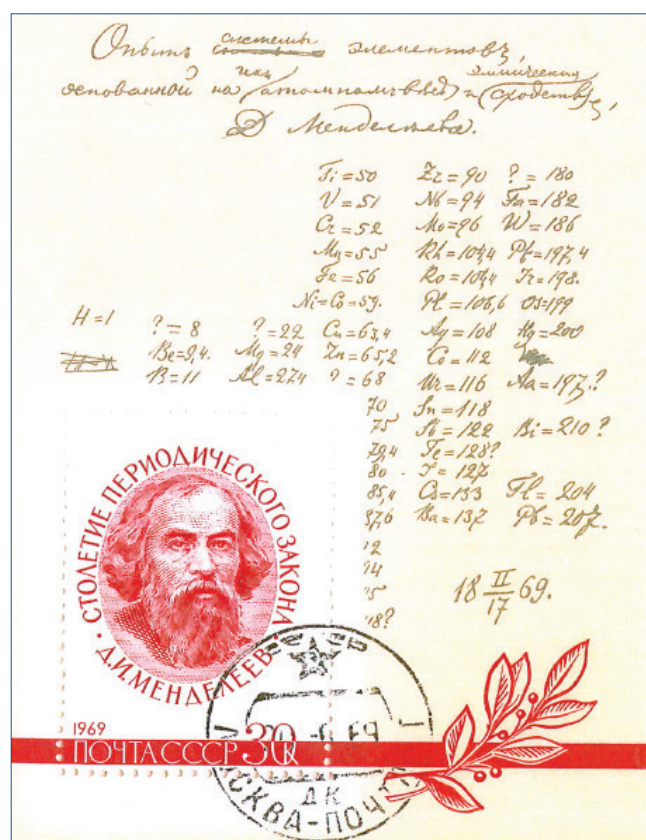 Опытъ системы элементовъ,
основанной на ихъ атомномъ вѣсѣ и химическомъ сходствѣ,
Д Менделѣева.
Ti=50 Zr=90 ?=180
V=51 Nb=94 Ta=182
Cr=52 Mo=96 W=186
Mn=55 Rh=104,4 Pt=197,4
Fe=56 Ro=104,4 Ir=198.
Ni=Co=59. Pl=106,6 Os=199
H=1 ?=8 ?=22 Cu=63,4 Ag=108 Hg=200
Be=9,4. Mg=24 Zn=65,2 Co=112
B=11 Al=27,4 ?=68 Ur=116 Au=197.?
70 Sn=118
75 Sb=122 Bi=210?
79,4 Te=128?
80 J=127
85,4 Cs=133 Tl=204
87,6 Ba=137 Pb=207.
92
94
95
118?
18 II/17 69.
СТОЛЕТИЕ ПЕРИОДИЧЕСКОГО ЗАКОНА
· Д.И.МЕНДЕЛЕЕВ ·
1969
ПОЧТА СССР 30К
МОСКВА-ПОЧТ
ДК